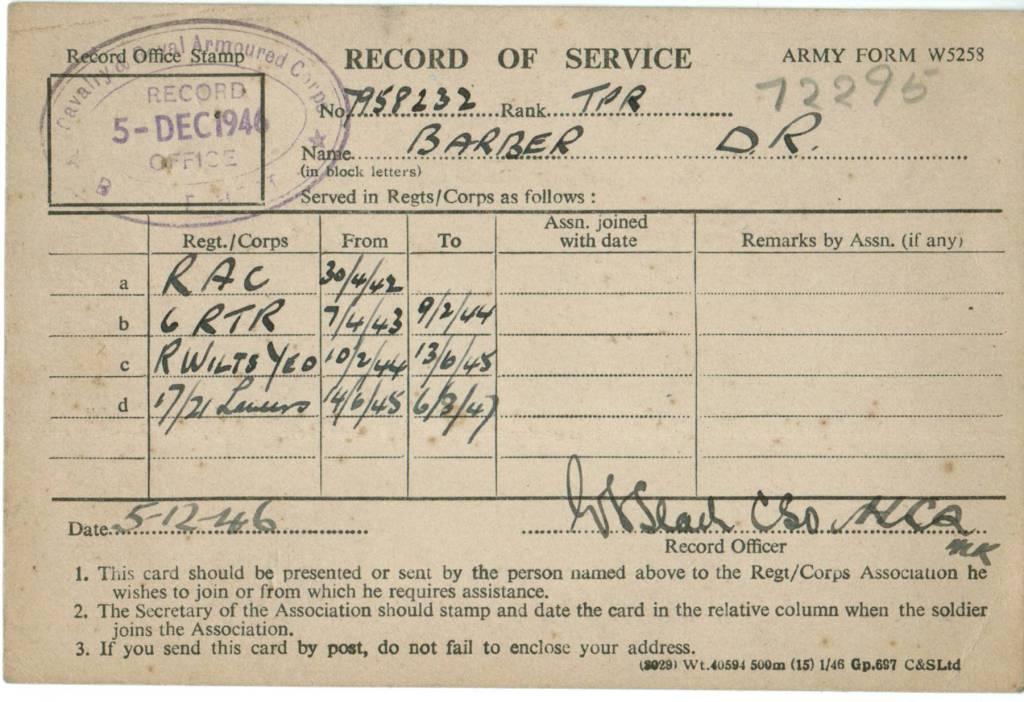 Record Office Stamp
Cavalry & Royal Armoured Corps
RECORD
5-DEC1946
OFFICE
RECORD OF SERVICE
ARMY FORM W5258
72295
No. 7958232 Rank TPR
Name BARBER D.R.
(in block letters)
Served in Regts/Corps as follows :
Regt./Corps From To Assn. joined with date Remarks by Assn. (if any)
a RAC 30/4/42
b 6 RTR 7/4/43 9/2/44
c R WILTS YEO 10/2/44 13/6/45
d 17/21 Lancers 14/6/45 6/3/47
Date 5-12-46
Record Officer
1. This card should be presented or sent by the person named above to the Regt/Corps Association he
wishes to join or from which he requires assistance.
2. The Secretary of the Association should stamp and date the card in the relative column when the soldier
joins the Association.
3. If you send this card by post, do not fail to enclose your address.
(8029) Wt.40594 500m (15) 1/46 Gp.697 C&SLtd